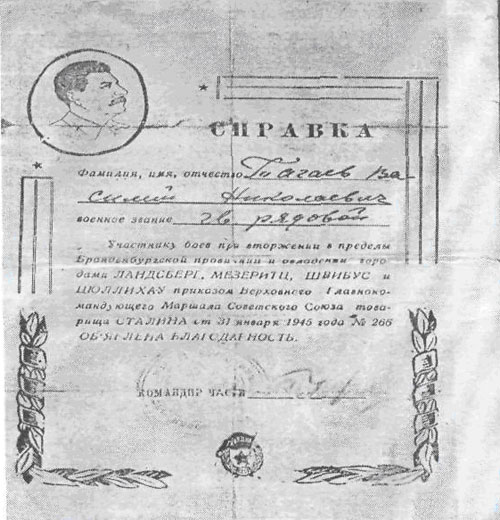 СПРАВКА
Фамилия, имя, отчество Тагаев Ва-
силий Николаевич
военное звание гв рядовой
Участнику боев при вторжении в пределы
Бранденбургской провинции и овладении горо-
дами ЛАНДСБЕРГ, МЕЗЕРИТЦ, ШВИБУС и
ЦЮЛЛИХАУ приказом Верховного Главноко-
мандующего Маршала Советского Союза това-
рища СТАЛИНА от 31 января 1945 года № 266
ОБ'ЯВЛЕНА БЛАГОДАРНОСТЬ.
КОМАНДИР ЧАСТИ